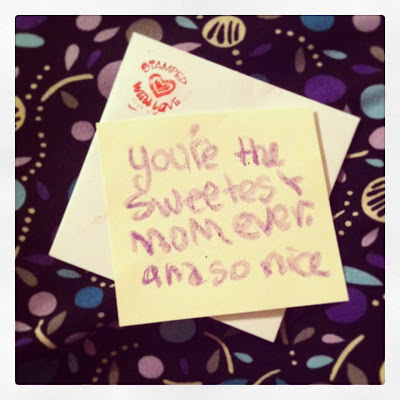 STAMPED
WITH LOVE
you're the
sweetest
mom ever.
and so nice